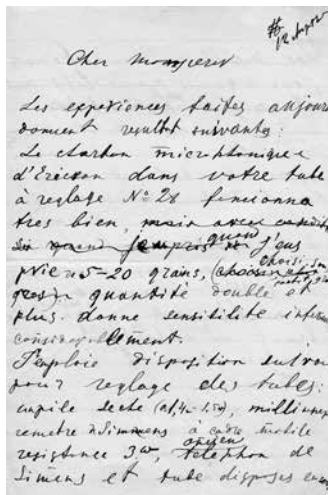 Cher Monsieur
Les experiences faites aujour
donnent resultat suivantes:
Le charbon microphonique
d'Ericson dans votre tube
à reglage No 28 fonctionna
tres bien, quand j'eus
pris 5-20 grains, (choisi
gros) quantité double et
plus donne sensibilite infer
considerablement.
J'emploie disposition suivan
pour reglage des tubes:
une pile seche (a 1,4 - 1.5v), milliam
remetre d Simmens à cadre mobile
resistance 3 ω, ancien telephon de
Simens et tube disposes en